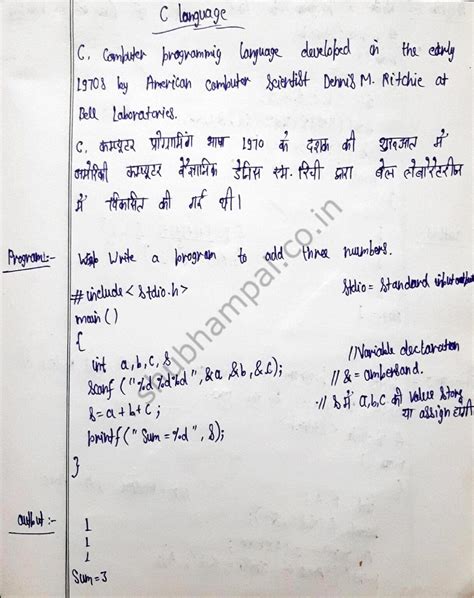 C language
C, Computer programmig language developed in the early
1970s by American computer Scientist Dennis M. Ritchie at
Bell Laboratories.
C, कम्प्यूटर प्रोग्रामिंग भाषा 1970 के दशक की शुरूआत में
अमेरिकी कम्प्यूटर वैज्ञानिक डेनिस एम. रिची द्वारा बेल लेबोरेटरीज
में विकसित की गई थी।
Program:- Write a program to add three numbers.
#include<stdio.h> Stdio = Standard input output
main ()
{
int a,b,c,s //Variable declaration
Scanf ("%d%d%d", &a,&b,&c); // & = ambersand.
S=a+b+c; // S में a,b,c की value store
या assign होगी
printf("Sum=%d", S);
}
output:- 1
1
1
Sum=3
shubhampal.co.in